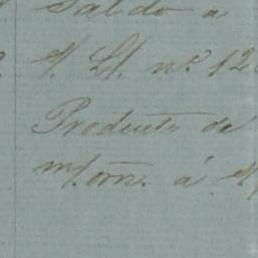 Saldo a
s/ L/. nº 12
Producto de
m/ orn. á s/